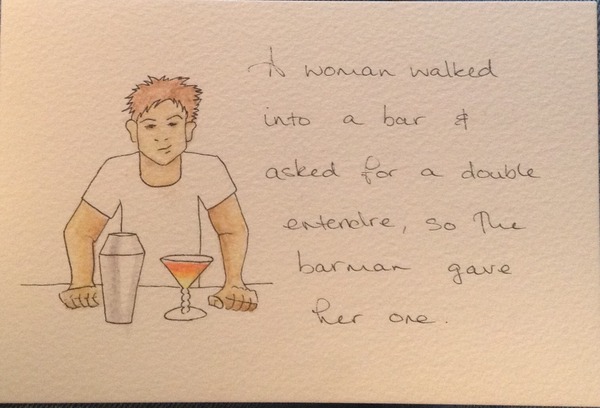 A woman walked
into a bar &
asked for a double
entendre, so The
barman gave
her one.